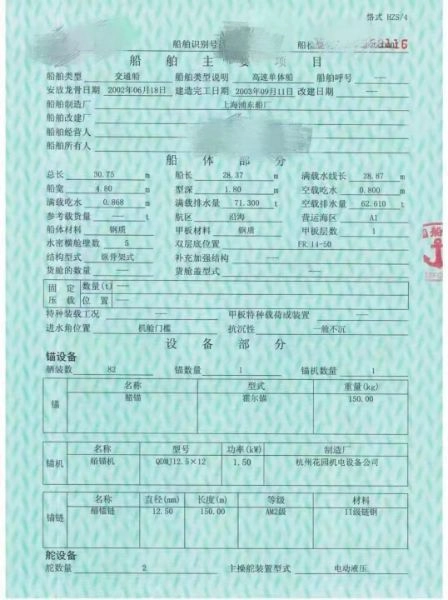 格式 HZS/4
船舶识别号
船检登
68116
船舶主要项目
船舶类型 交通船 船舶类型说明 高速单体船 船舶呼号 —
安放龙骨日期 2002年06月18日 建造完工日期 2003年09月11日 改建日期 —
船舶制造厂 上海浦东船厂
船舶改建厂
船舶经营人
船舶所有人
船体部分
总长 30.75 m 船长 28.37 m 满载水线长 28.87 m
船宽 4.80 m 型深 1.80 m 空载吃水 0.800 m
满载吃水 0.868 m 满载排水量 71.300 t 空载排水量 62.610 t
参考载货量 — t 航区 沿海 营运海区 A1
船体材料 钢质 甲板材料 钢质 甲板层数 1
水密横舱壁数 5 双层底位置 FR.14-50
结构型式 纵骨架式 补充加强结构 —
货舱的数量 — 货舱盖型式 —
固定压载 数量(t) —
位置 —
特种装载工况 — 甲板特种载荷或装置 —
进水角位置 机舱门槛 抗沉性 一舱不沉
设备部分
锚设备
舾装数 82 锚数量 1 锚机数量 1
锚 名称 型式 重量(kg)
艏锚 霍尔锚 150.00
锚机 名称 型号 功率(kW) 制造厂
艏锚机 QDMJ12.5×12 1.50 杭州花园机电设备公司
锚链 名称 直径(mm) 长度(m) 等级 材料
艏锚链 12.50 150.00 AM2级 II级链钢
舵设备
舵数量 2 主操舵装置型式 电动液压
船